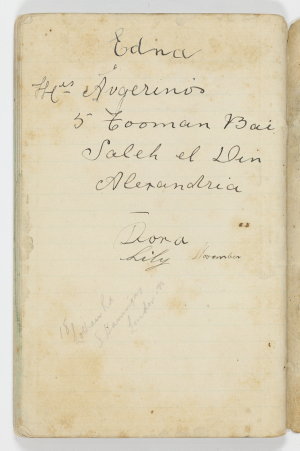 Edna
Mrs Avgerinos
5 Tooman Bai
Saleh el Din
Alexandria
Dora
Lily November